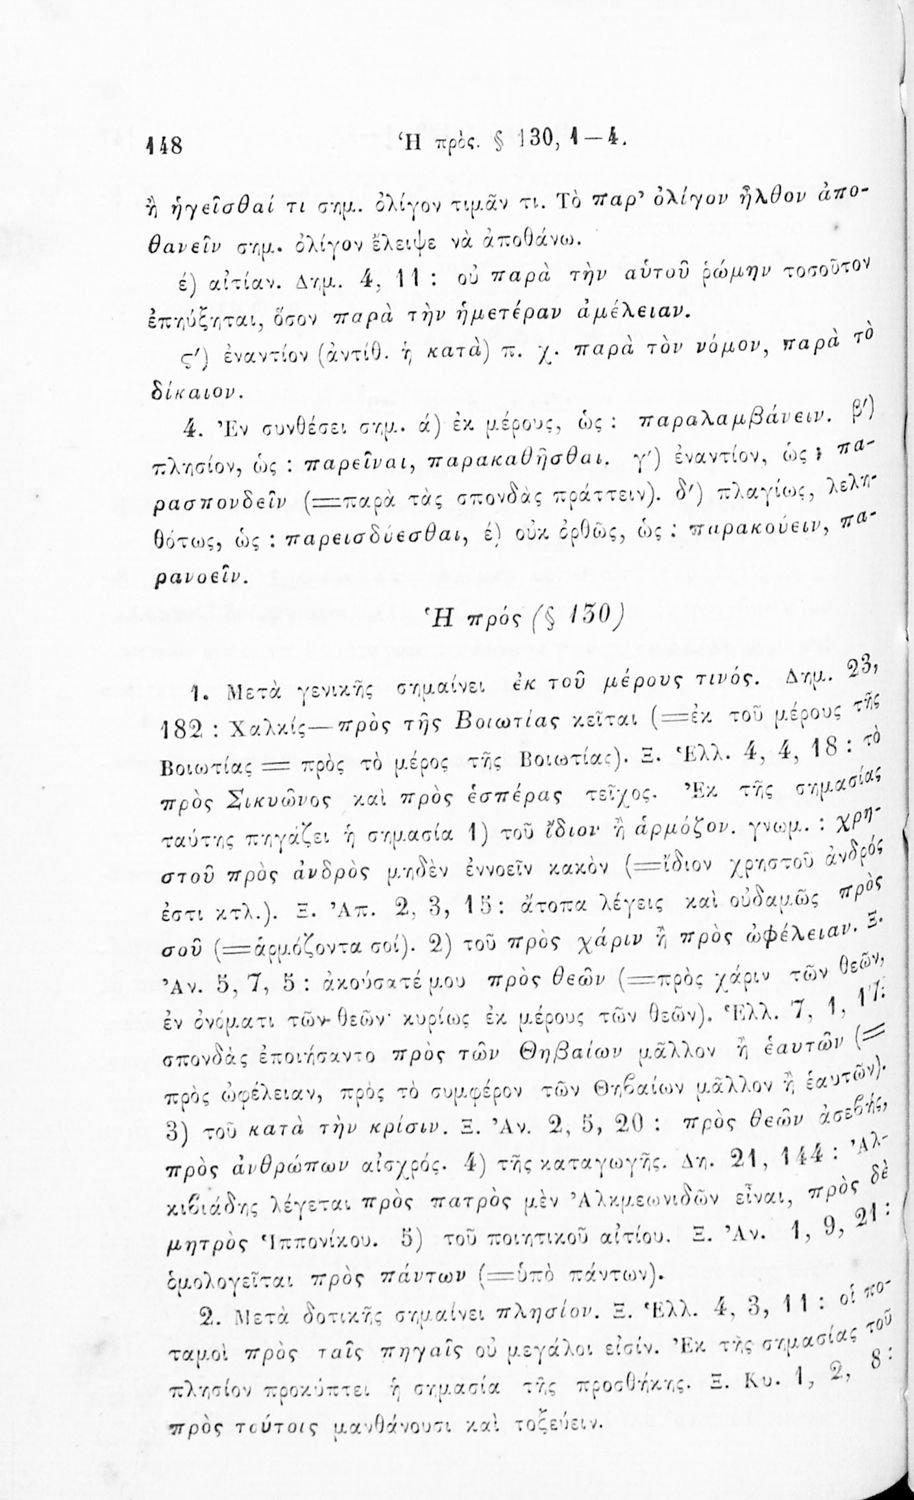 148 Ἡ πρὸς. § 130, 1—4.
ἢ ἡγεῖσθαί τι σημ. ὀλίγον τιμᾶν τι. Τὸ παρ’ ὀλίγον ἦλθον ἀπο-
θανεῖν σημ. ὀλίγον ἔλειψε νὰ ἀποθάνω.
έ) αἰτίαν. Δημ. 4, 11 : οὐ παρὰ τὴν αὑτοῦ ῥώμην τοσοῦτον
ἐπηύξηται, ὅσον παρὰ τὴν ἡμετέραν ἀμέλειαν.
ς′) ἐναντίον (ἀντίθ. ἡ κατὰ) π. χ. παρὰ τὸν νόμον, παρὰ τὸ
δίκαιον.
4. Ἐν συνθέσει σημ. ά) ἐκ μέρους, ὡς : παραλαμβάνειν. β′)
πλησίον, ὡς : παρεῖναι, παρακαθῆσθαι. γ′) ἐναντίον, ὡς : πα-
ρασπονδεῖν (=παρὰ τὰς σπονδὰς πράττειν). δ′) πλαγίως, λελη-
θότως, ὡς : παρεισδύεσθαι, έ) οὐκ ὀρθῶς, ὡς : παρακούειν, πα-
ρανοεῖν.
Ἡ πρός (§ 130)
1. Μετὰ γενικῆς σημαίνει ἐκ τοῦ μέρους τινός. Δημ. 23,
182 : Χαλκίς—πρὸς τῆς Βοιωτίας κεῖται (=ἐκ τοῦ μέρους τῆς
Βοιωτίας = πρὸς τὸ μέρος τῆς Βοιωτίας). Ξ. Ἑλλ. 4, 4, 18 : τὸ
πρὸς Σικυῶνος καὶ πρὸς ἑσπέρας τεῖχος. Ἐκ τῆς σημασίας
ταύτης πηγάζει ἡ σημασία 1) τοῦ ἴδιον ἢ ἁρμόζον. γνωμ. : χρη-
στοῦ πρὸς ἀνδρὸς μηδὲν ἐννοεῖν κακὸν (=ἴδιον χρηστοῦ ἀνδρός
ἐστι κτλ.). Ξ. Ἀπ. 2, 3, 15 : ἄτοπα λέγεις καὶ οὐδαμῶς πρὸς
σοῦ (=ἁρμόζοντα σοί). 2) τοῦ πρὸς χάριν ἢ πρὸς ὠφέλειαν. Ξ.
Ἀν. 5, 7, 5 : ἀκούσατέ μου πρὸς θεῶν (=πρὸς χάριν τῶν θεῶν,
ἐν ὀνόματι τῶν θεῶν· κυρίως ἐκ μέρους τῶν θεῶν). Ἑλλ. 7, 1, 17:
σπονδὰς ἐποιήσαντο πρὸς τῶν Θηβαίων μᾶλλον ἢ ἑαυτῶν (=
πρὸς ὠφέλειαν, πρὸς τὸ συμφέρον τῶν Θηβαίων μᾶλλον ἢ ἑαυτῶν).
3) τοῦ κατὰ τὴν κρίσιν. Ξ. Ἀν. 2, 5, 20 : πρὸς θεῶν ἀσεβής,
πρὸς ἀνθρώπων αἰσχρός. 4) τῆς καταγωγῆς. Δη. 21, 144 : Ἀλ-
κιβιάδης λέγεται πρὸς πατρὸς μὲν Ἀλκμεωνιδῶν εἶναι, πρὸς δὲ
μητρὸς Ἱππονίκου. 5) τοῦ ποιητικοῦ αἰτίου. Ξ. Ἀν. 1, 9, 21 :
ὁμολογεῖται πρὸς πάντων (=ὑπὸ πάντων).
2. Μετὰ δοτικῆς σημαίνει πλησίον. Ξ. Ἑλλ. 4, 3, 11 : οἱ πο-
ταμοὶ πρὸς ταῖς πηγαῖς οὐ μεγάλοι εἰσίν. Ἐκ τῆς σημασίας τοῦ
πλησίον προκύπτει ἡ σημασία τῆς προσθήκης. Ξ. Κυ. 1, 2, 8 :
πρὸς τούτοις μανθάνουσι καὶ τοξεύειν.